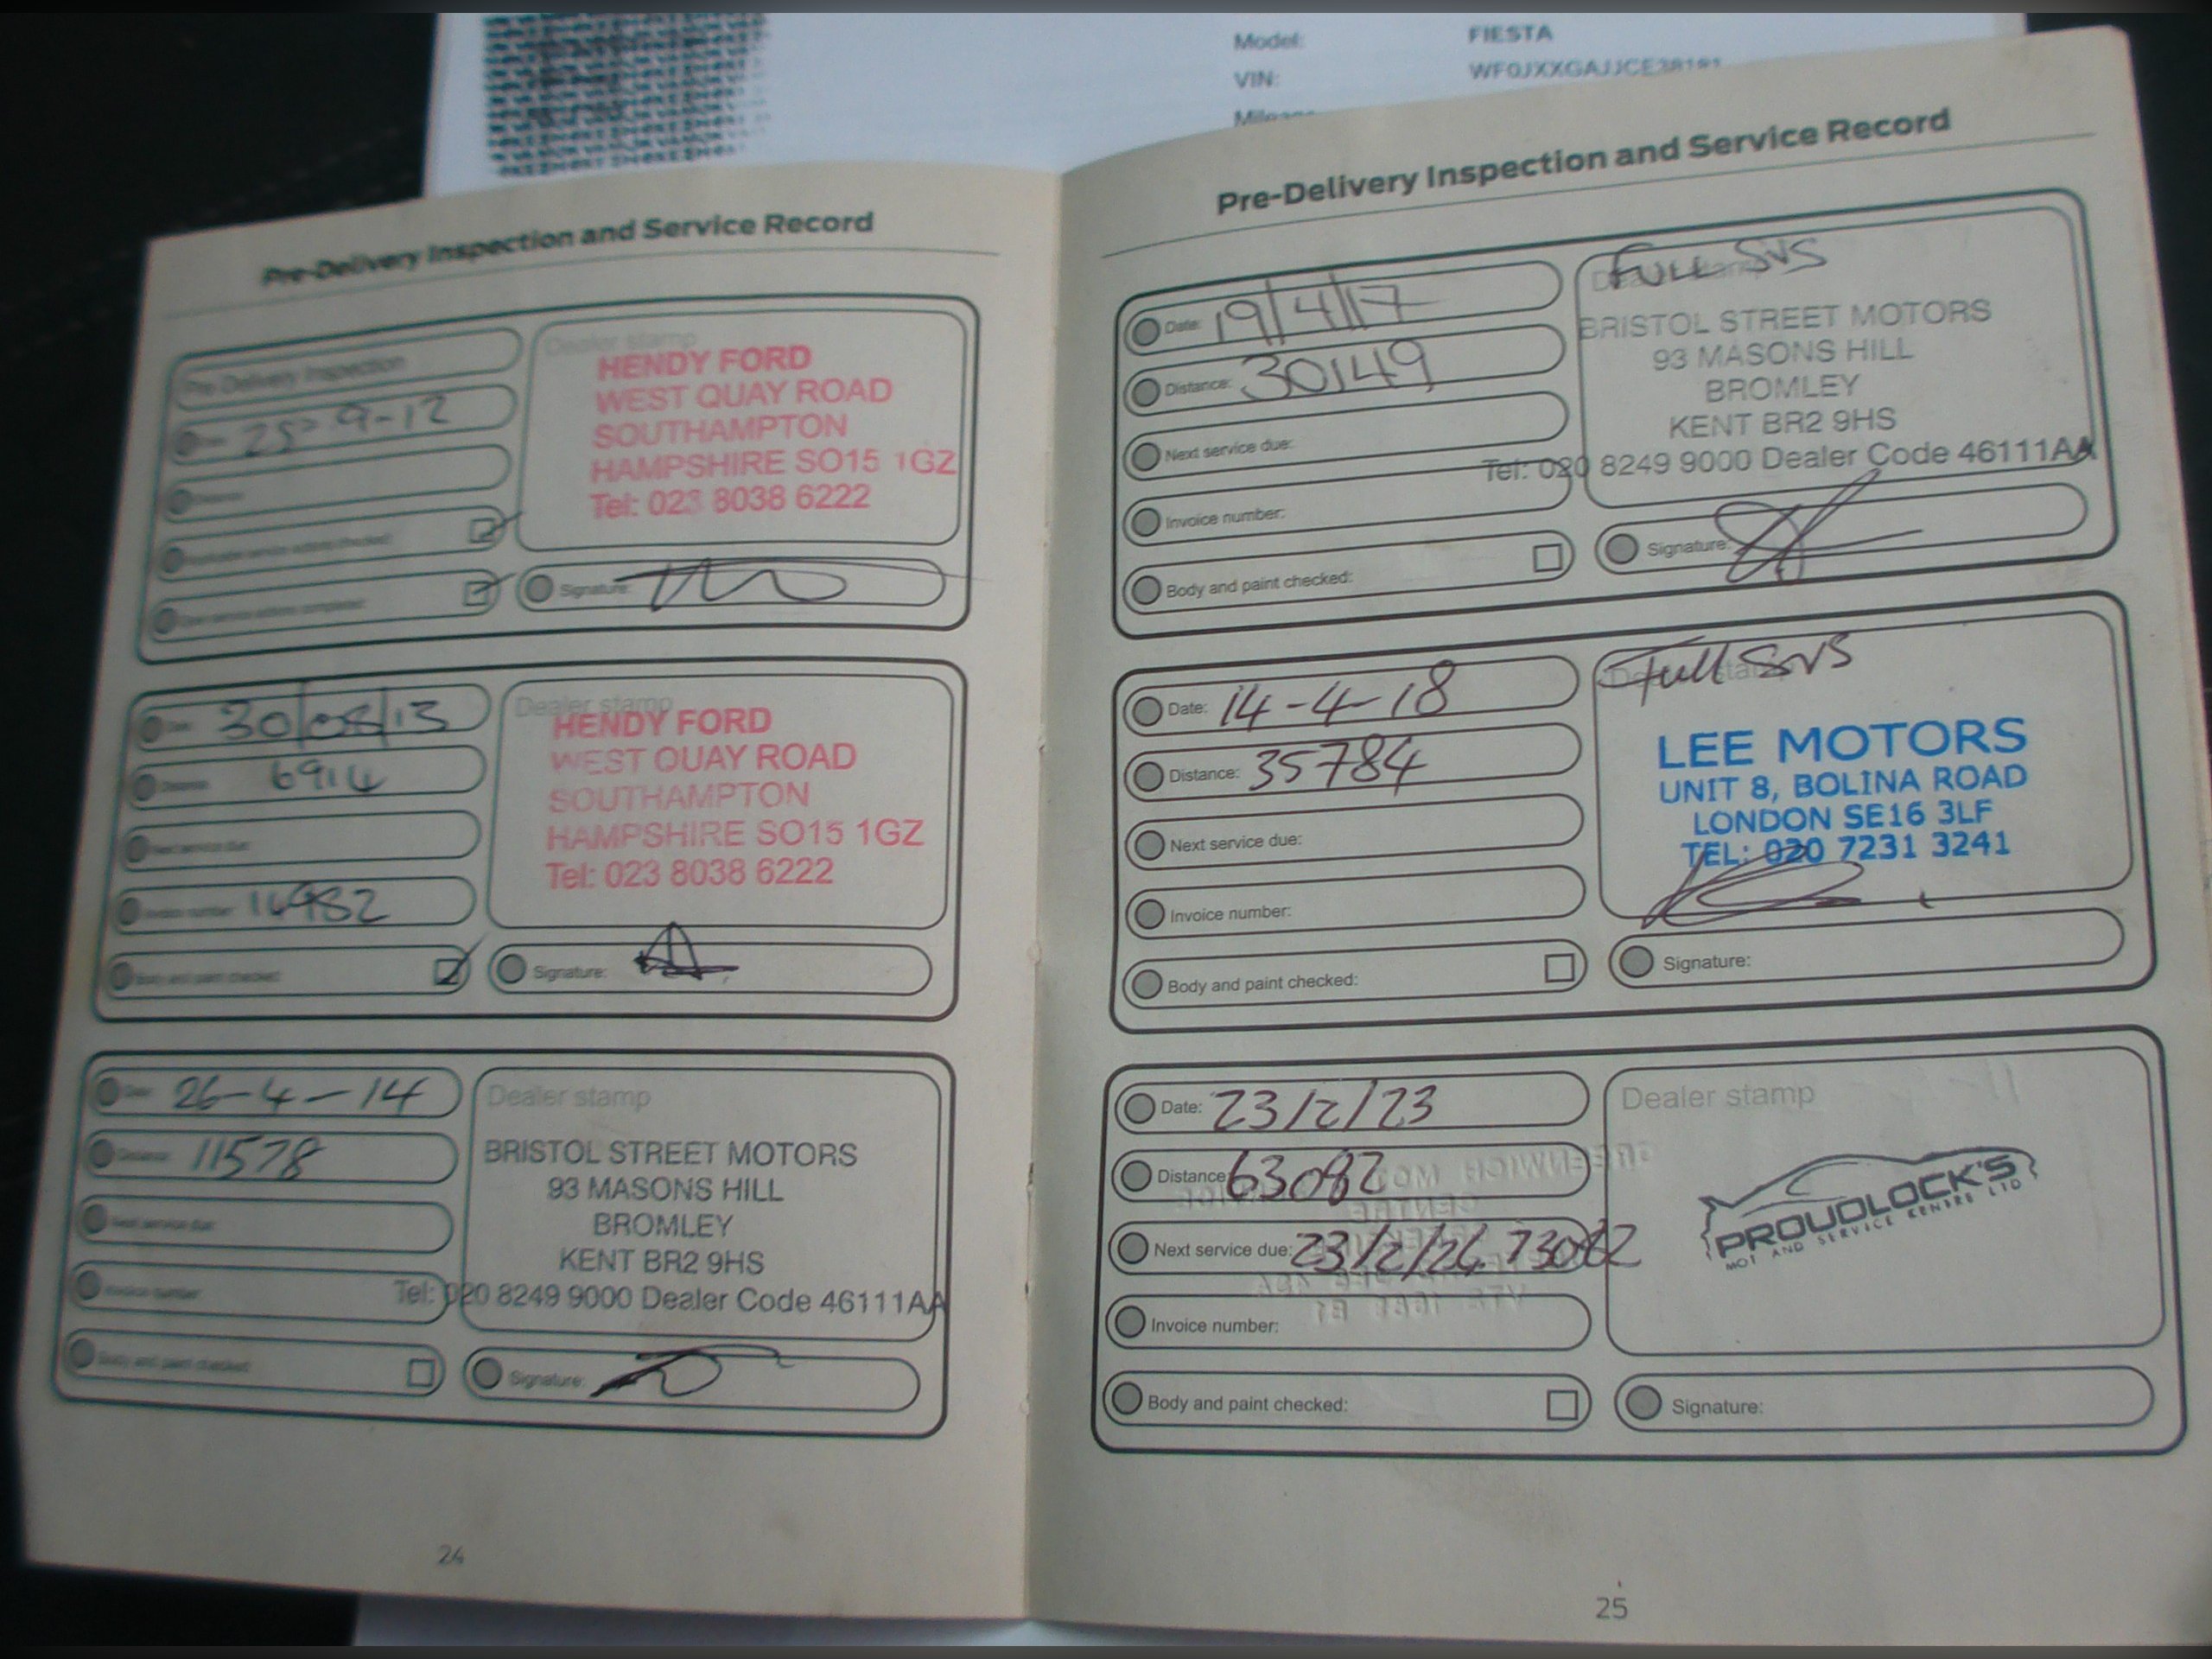 Model: FIESTA
VIN: WF0JXXGAJJCE38191
Pre-Delivery Inspection and Service Record
Pre Delivery Inspection
25-9-12
Dealer stamp
HENDY FORD
WEST QUAY ROAD
SOUTHAMPTON
HAMPSHIRE SO15 1GZ
Tel: 023 8038 6222
Signature:
Date: 30/08/13
Distance: 6914
Next service due:
Invoice number: 14982
Body and paint checked:
Dealer stamp
HENDY FORD
WEST QUAY ROAD
SOUTHAMPTON
HAMPSHIRE SO15 1GZ
Tel: 023 8038 6222
Signature:
Date: 26-4-14
Distance: 11578
Next service due:
Invoice number:
Body and paint checked:
Dealer stamp
BRISTOL STREET MOTORS
93 MASONS HILL
BROMLEY
KENT BR2 9HS
Tel: 020 8249 9000 Dealer Code 46111AA
Signature:
24
Pre-Delivery Inspection and Service Record
Date: 19/4/17
Distance: 30149
Next service due:
Invoice number:
Body and paint checked:
Dealer stamp
FULL SVS
BRISTOL STREET MOTORS
93 MASONS HILL
BROMLEY
KENT BR2 9HS
Tel: 020 8249 9000 Dealer Code 46111AA
Signature:
Date: 14-4-18
Distance: 35784
Next service due:
Invoice number:
Body and paint checked:
Full SVS
LEE MOTORS
UNIT 8, BOLINA ROAD
LONDON SE16 3LF
TEL: 020 7231 3241
Signature:
Date: 23/2/23
Distance: 63082
Next service due: 23/2/24 73082
Invoice number:
Body and paint checked:
Dealer stamp
PROUDLOCK'S
MOT AND SERVICE CENTRE LTD
Signature:
25